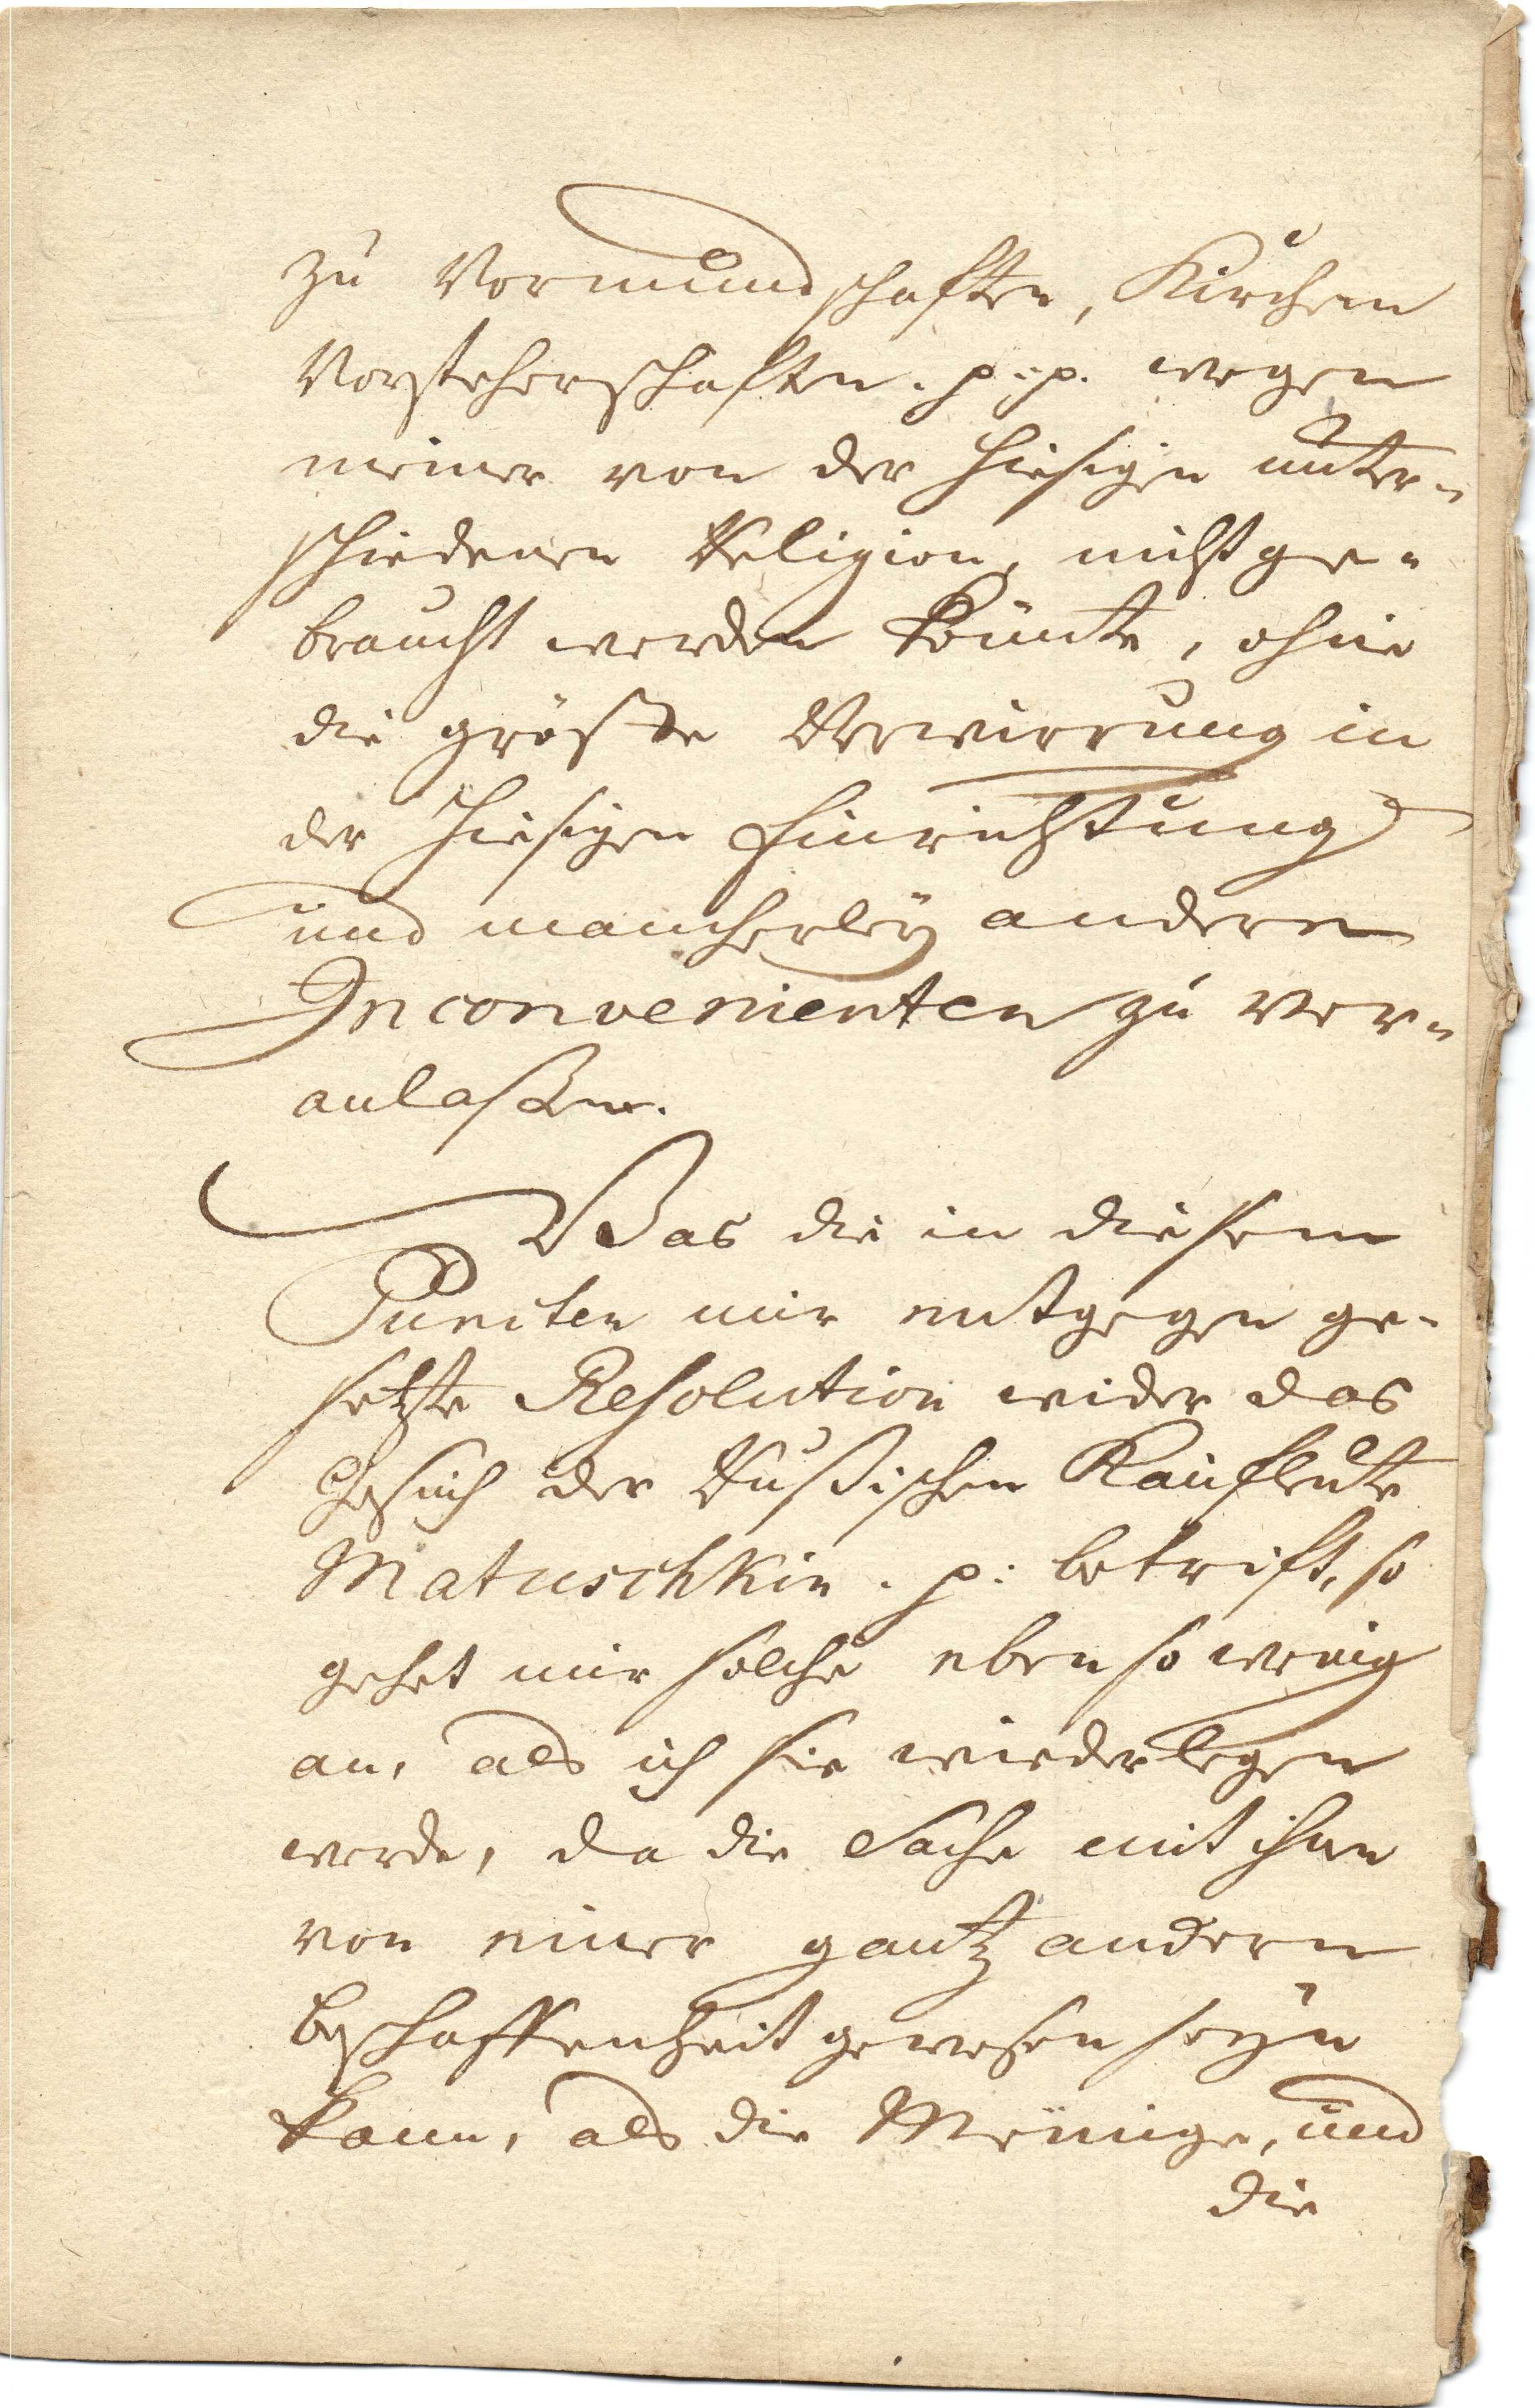 zu Vormundschafften, Kirchen
Vorsteherschafften. p. p. wegen
meiner von der hiesigen unter-
schiedenen Religion, nicht ge-
braucht werden könnte, ohne
die größte Verwirrung in
der hiesigen Einrichtung
und mancherleÿ andere
Inconvenienten zu ver-
anlaßen.
Was die in diesem
Puncten mir entgegen ge-
setzte Resolution wider das
Gesuch der Rußischen Kaufleute
Matuschkin. p: betrift, so
gehet mir solche eben so wenig
an, als ich sie wiederlegen
werde, da die Sache mit ihnen
von einer gantz andern
Beschaffenheit gewesen seÿn
kann, als die Meinige, und
die